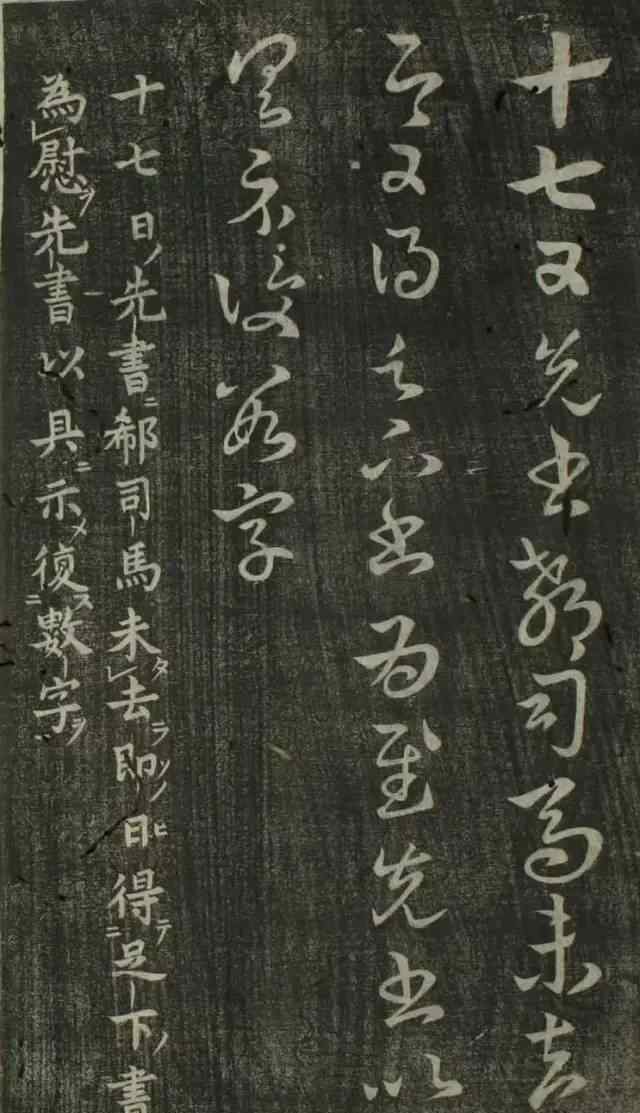 十七日先書郗司馬未去
即日得足下書為慰先書以
具示復數字
十七日ノ先書ニ郗司馬未タ去ラ即ソノ日ヒ得テ足下ノ書
為慰ヲ先書以具ニ示メ復ス數字ヲ